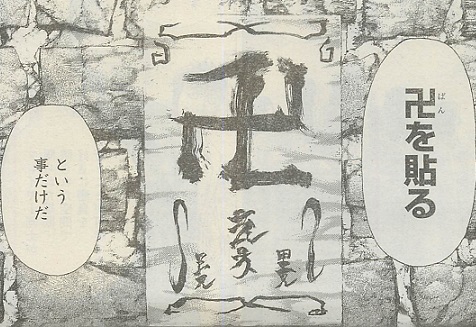 卍を貼る
ばん
卍
という
事だけだ